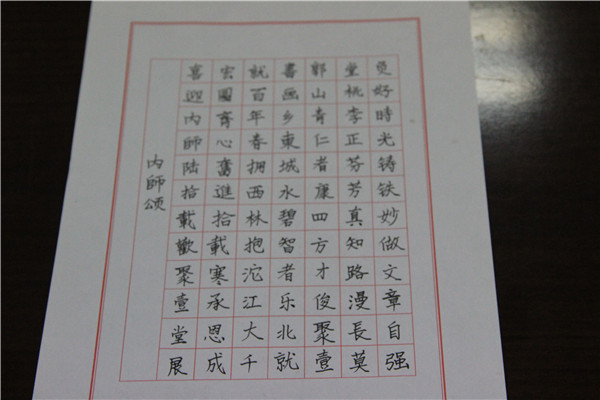 内師颂
喜迎内師陆拾載歡聚壹堂展
宏圖育心奮進拾載寒承恩成
就百年春拥西林抱沱江大千
書画乡東城永碧智者乐北就
郭山青仁者康四方才俊聚壹
堂桃李正芬芳真知路漫長莫
负好時光铸铁妙做文章自强